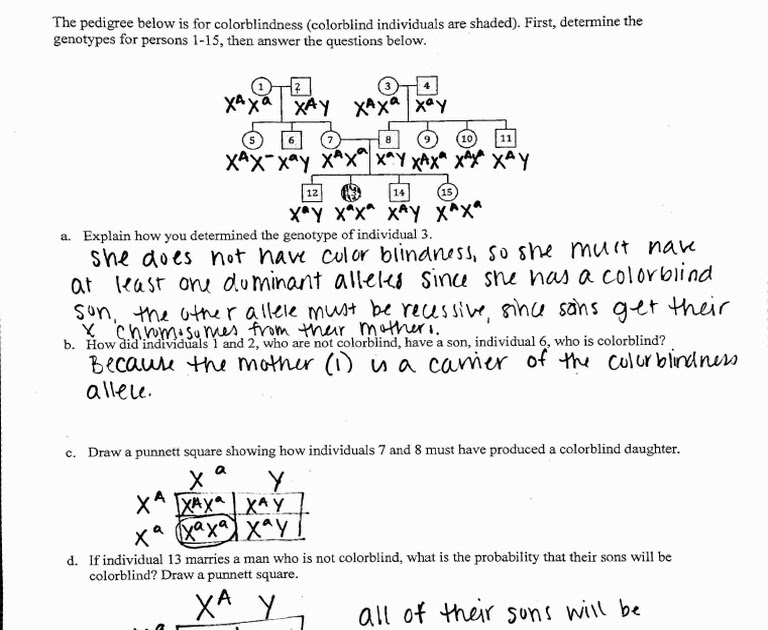 The pedigree below is for colorblindness (colorblind individuals are shaded). First, determine the
genotypes for persons 1-15, then answer the questions below.
1 2 3 4
XᴬXᵃ XᴬY XᴬXᵃ XᵃY
5 6 7 8 9 10 11
XᴬX⁻ XᵃY XᴬXᵃ XᵃY XᴬXᵃ XᴬXᵃ XᴬY
12 14 15
XᵃY XᵃXᵃ XᴬY XᴬXᵃ
a. Explain how you determined the genotype of individual 3.
She does not have color blindness, so she must have
at least one dominant alleles since she has a colorblind
son, the other allele must be recessive, since sons get their
X chromosomes from their mothers.
b. How did individuals 1 and 2, who are not colorblind, have a son, individual 6, who is colorblind?
Because the mother (1) is a carrier of the colorblindness
allele.
c. Draw a punnett square showing how individuals 7 and 8 must have produced a colorblind daughter.
Xᵃ Y
Xᴬ XᴬXᵃ XᴬY
Xᵃ XᵃXᵃ XᵃY
d. If individual 13 marries a man who is not colorblind, what is the probability that their sons will be
colorblind? Draw a punnett square.
Xᴬ Y
all of their sons will be